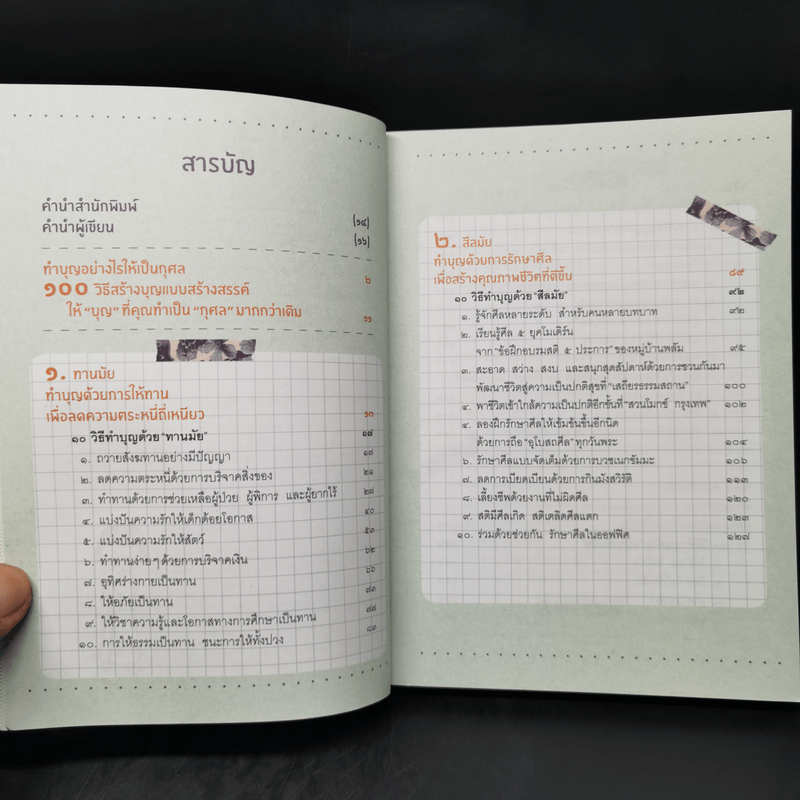 สารบัญ
คำนำสำนักพิมพ์ (๑๔)
คำนำผู้เขียน (๑๖)
ทำบุญอย่างไรให้เป็นกุศล ๖
๑๐๐ วิธีสร้างบุญแบบสร้างสรรค์
ให้ "บุญ" ที่คุณทำเป็น "กุศล" มากกว่าเดิม ๑๑
๑. ทานมัย
ทำบุญด้วยการให้ทาน
เพื่อลดความตระหนี่ถี่เหนียว ๑๐
๑๐ วิธีทำบุญด้วย "ทานมัย" ๑๗
๑. ถวายสังฆทานอย่างมีปัญญา ๑๗
๒. ลดความตระหนี่ด้วยการบริจาคสิ่งของ ๒๑
๓. ทำทานด้วยการช่วยเหลือผู้ป่วย ผู้พิการ และผู้ยากไร้ ๒๗
๔. แบ่งปันความรักให้เด็กด้อยโอกาส ๔๐
๕. แบ่งปันความรักให้สัตว์ ๕๓
๖. ทำทานง่ายๆ ด้วยการบริจาคเงิน ๖๒
๗. อุทิศร่างกายเป็นทาน ๖๖
๘. ให้อภัยเป็นทาน ๗๓
๙. ให้วิชาความรู้และโอกาสทางการศึกษาเป็นทาน ๗๗
๑๐. การให้ธรรมเป็นทาน ชนะการให้ทั้งปวง ๘๓
๒. สีลมัย
ทำบุญด้วยการรักษาศีล
เพื่อสร้างคุณภาพชีวิตที่ดีขึ้น ๘๙
๑๐ วิธีทำบุญด้วย "สีลมัย" ๙๒
๑. รู้จักศีลหลายระดับ สำหรับคนหลายบทบาท ๙๒
๒. เรียนรู้ศีล ๕ ยุคโมเดิร์น
จาก "ข้อฝึกอบรมสติ ๕ ประการ" ของหมู่บ้านพลัม ๙๕
๓. สะอาด สว่าง สงบ และสนุกสุดสัปดาห์ด้วยการชวนกันมา
พัฒนาชีวิตสู่ความเป็นปกติสุขที่ "เสถียรธรรมสถาน" ๑๐๐
๔. พาชีวิตเข้าใกล้ความเป็นปกติอีกขั้นที่ "สวนโมกข์ กรุงเทพ" ๑๐๒
๕. ลองฝึกรักษาศีลให้เข้มข้นขึ้นอีกนิด
ด้วยการถือ "อุโบสถศีล" ทุกวันพระ ๑๐๔
๖. รักษาศีลแบบจัดเต็มด้วยการบวชเนกขัมมะ ๑๐๖
๗. ลดการเบียดเบียนด้วยการกินมังสวิรัติ ๑๑๓
๘. เลี้ยงชีพด้วยงานที่ไม่ผิดศีล ๑๒๐
๙. สติมีศีลเกิด สติเตลิดศีลแตก ๑๒๓
๑๐. ร่วมด้วยช่วยกัน รักษาศีลในออฟฟิศ ๑๒๗